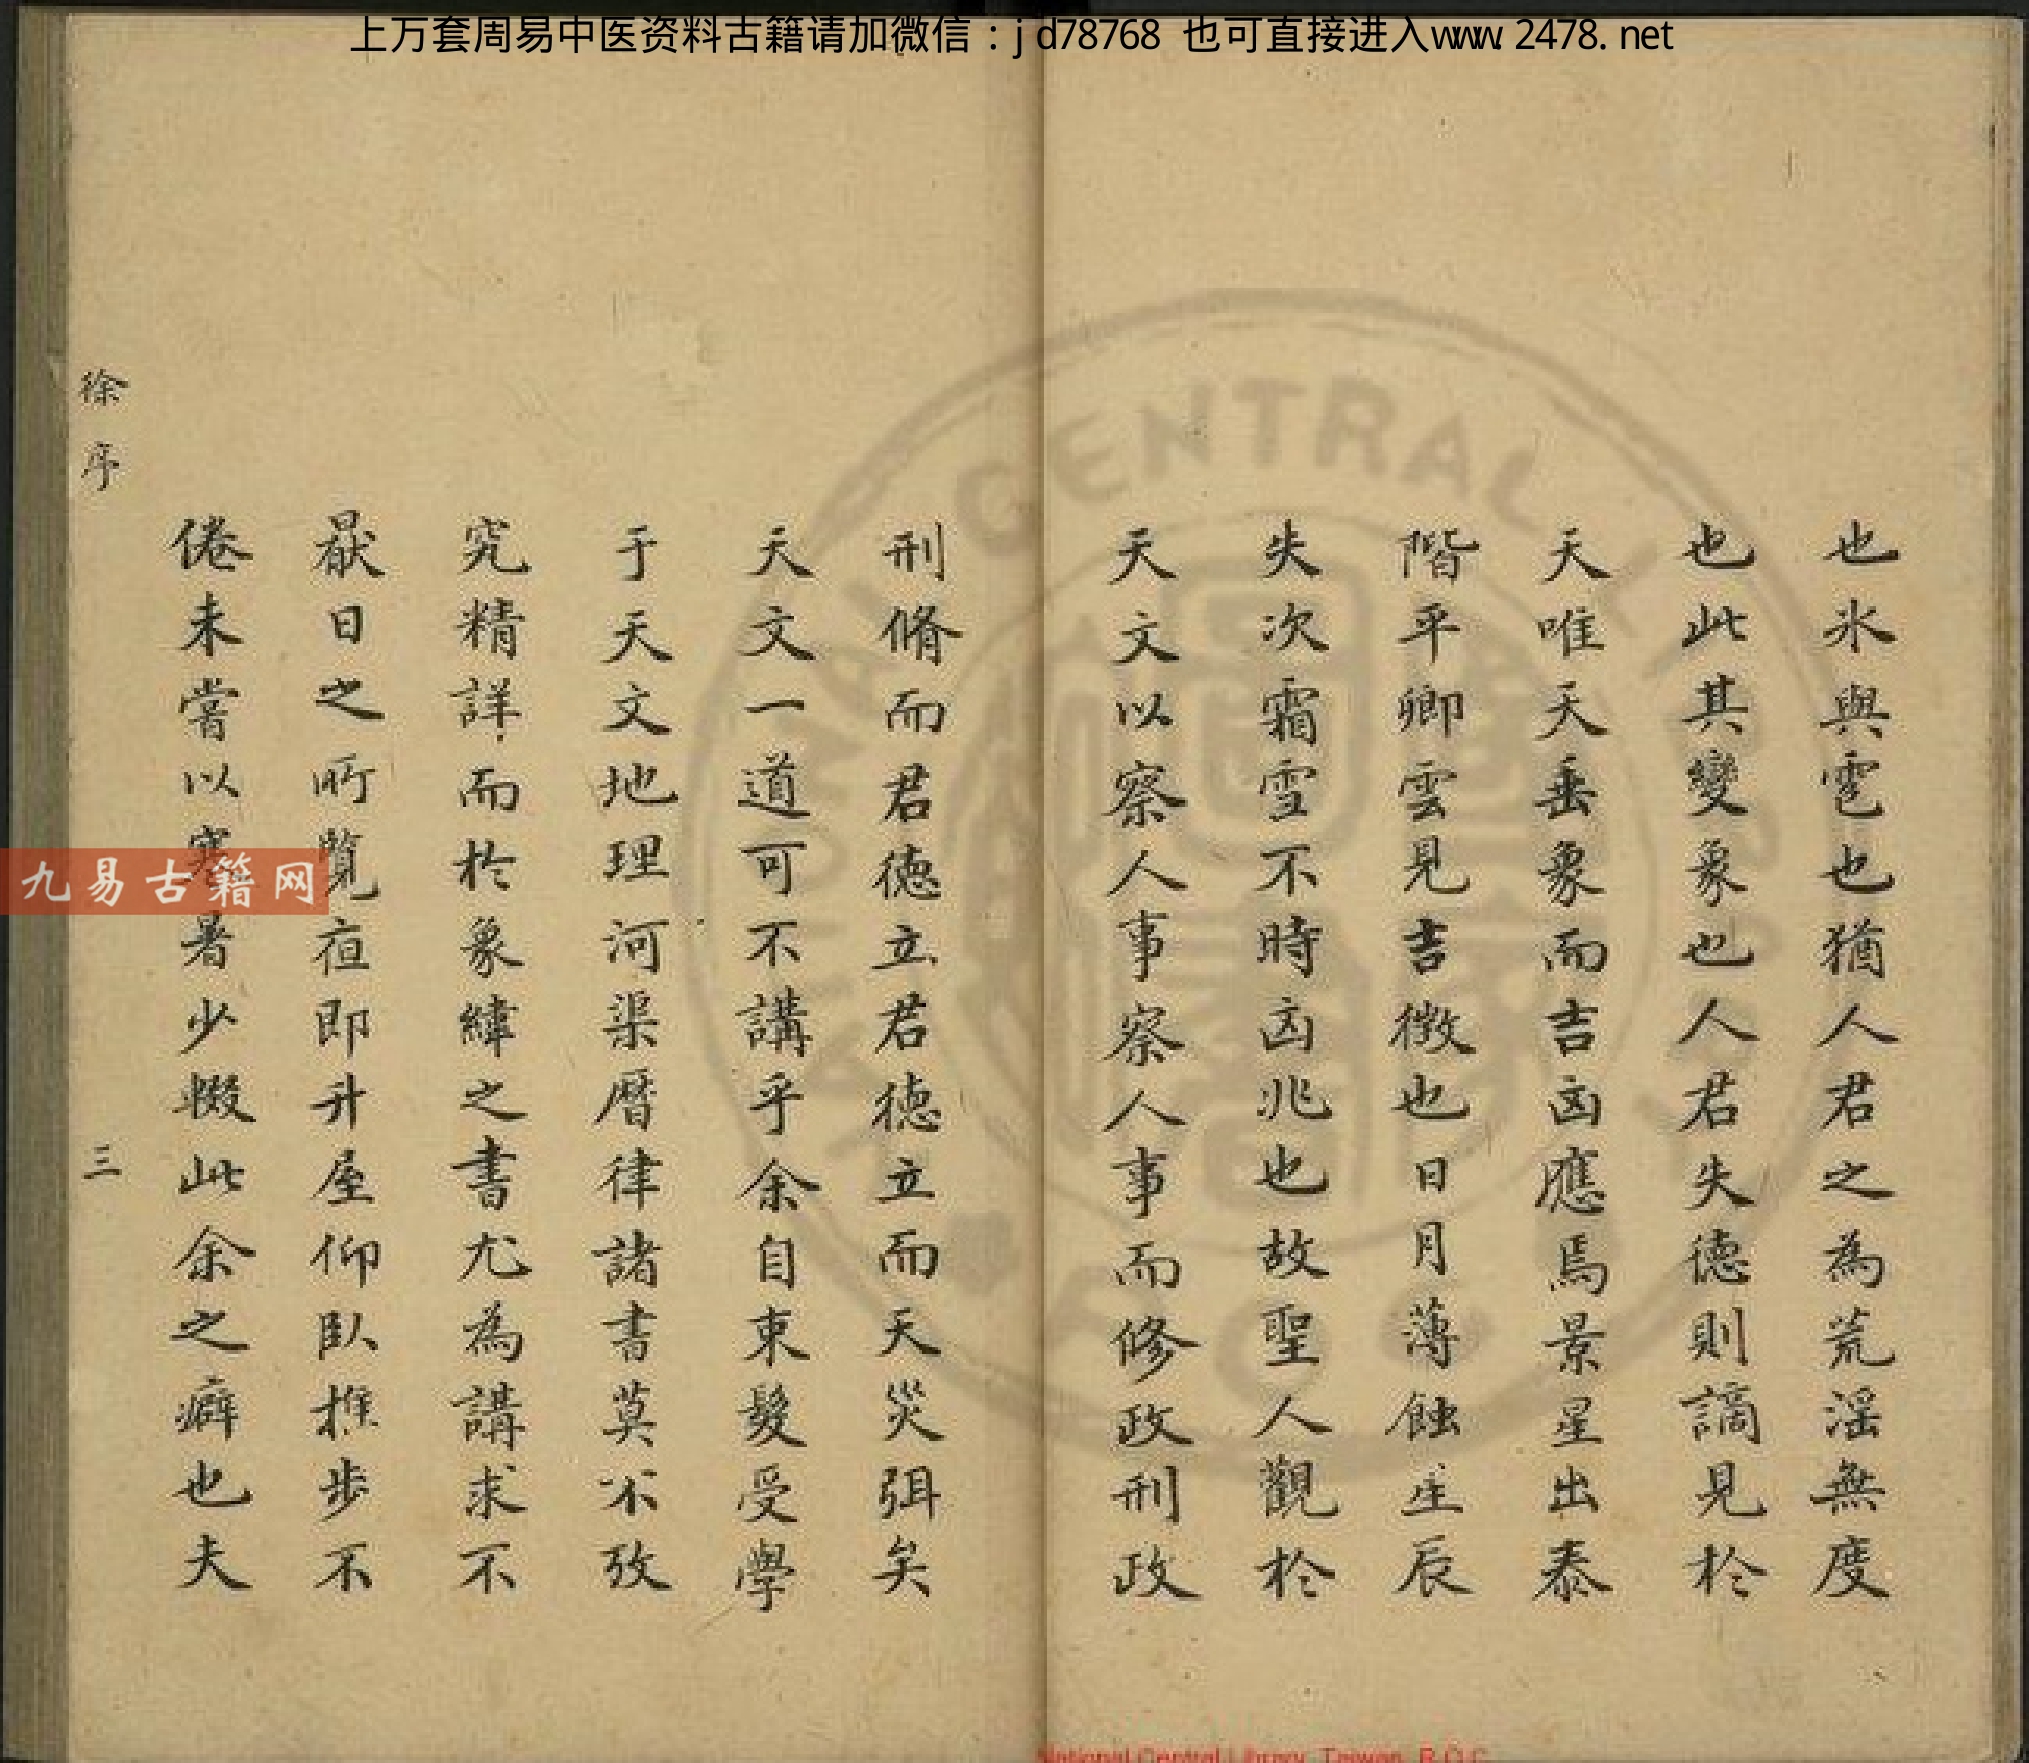 上万套周易中医资料古籍请加微信：jd78768 也可直接进入www.2478.net
也氷與雹也猶人君之為荒淫無度
也此其變象也人君失德則謫見於
天唯天垂象而吉凶應焉景星出泰
階平卿雲見吉徴也日月薄蝕星辰
失次霜雪不時凶兆也故聖人觀於
天文以察人事察人事而修政刑政
刑脩而君德立君德立而天災弭矣
天文一道可不講乎余自束髮受學
于天文地理河渠曆律諸書莫不攷
究精詳而於象緯之書尤為講求不
厭日之所覽夜即升屋仰臥推步不
倦未嘗以寒暑少輟此余之癖也夫
徐序
三
九易古籍网
National Central Library, Taiwan, R.O.C